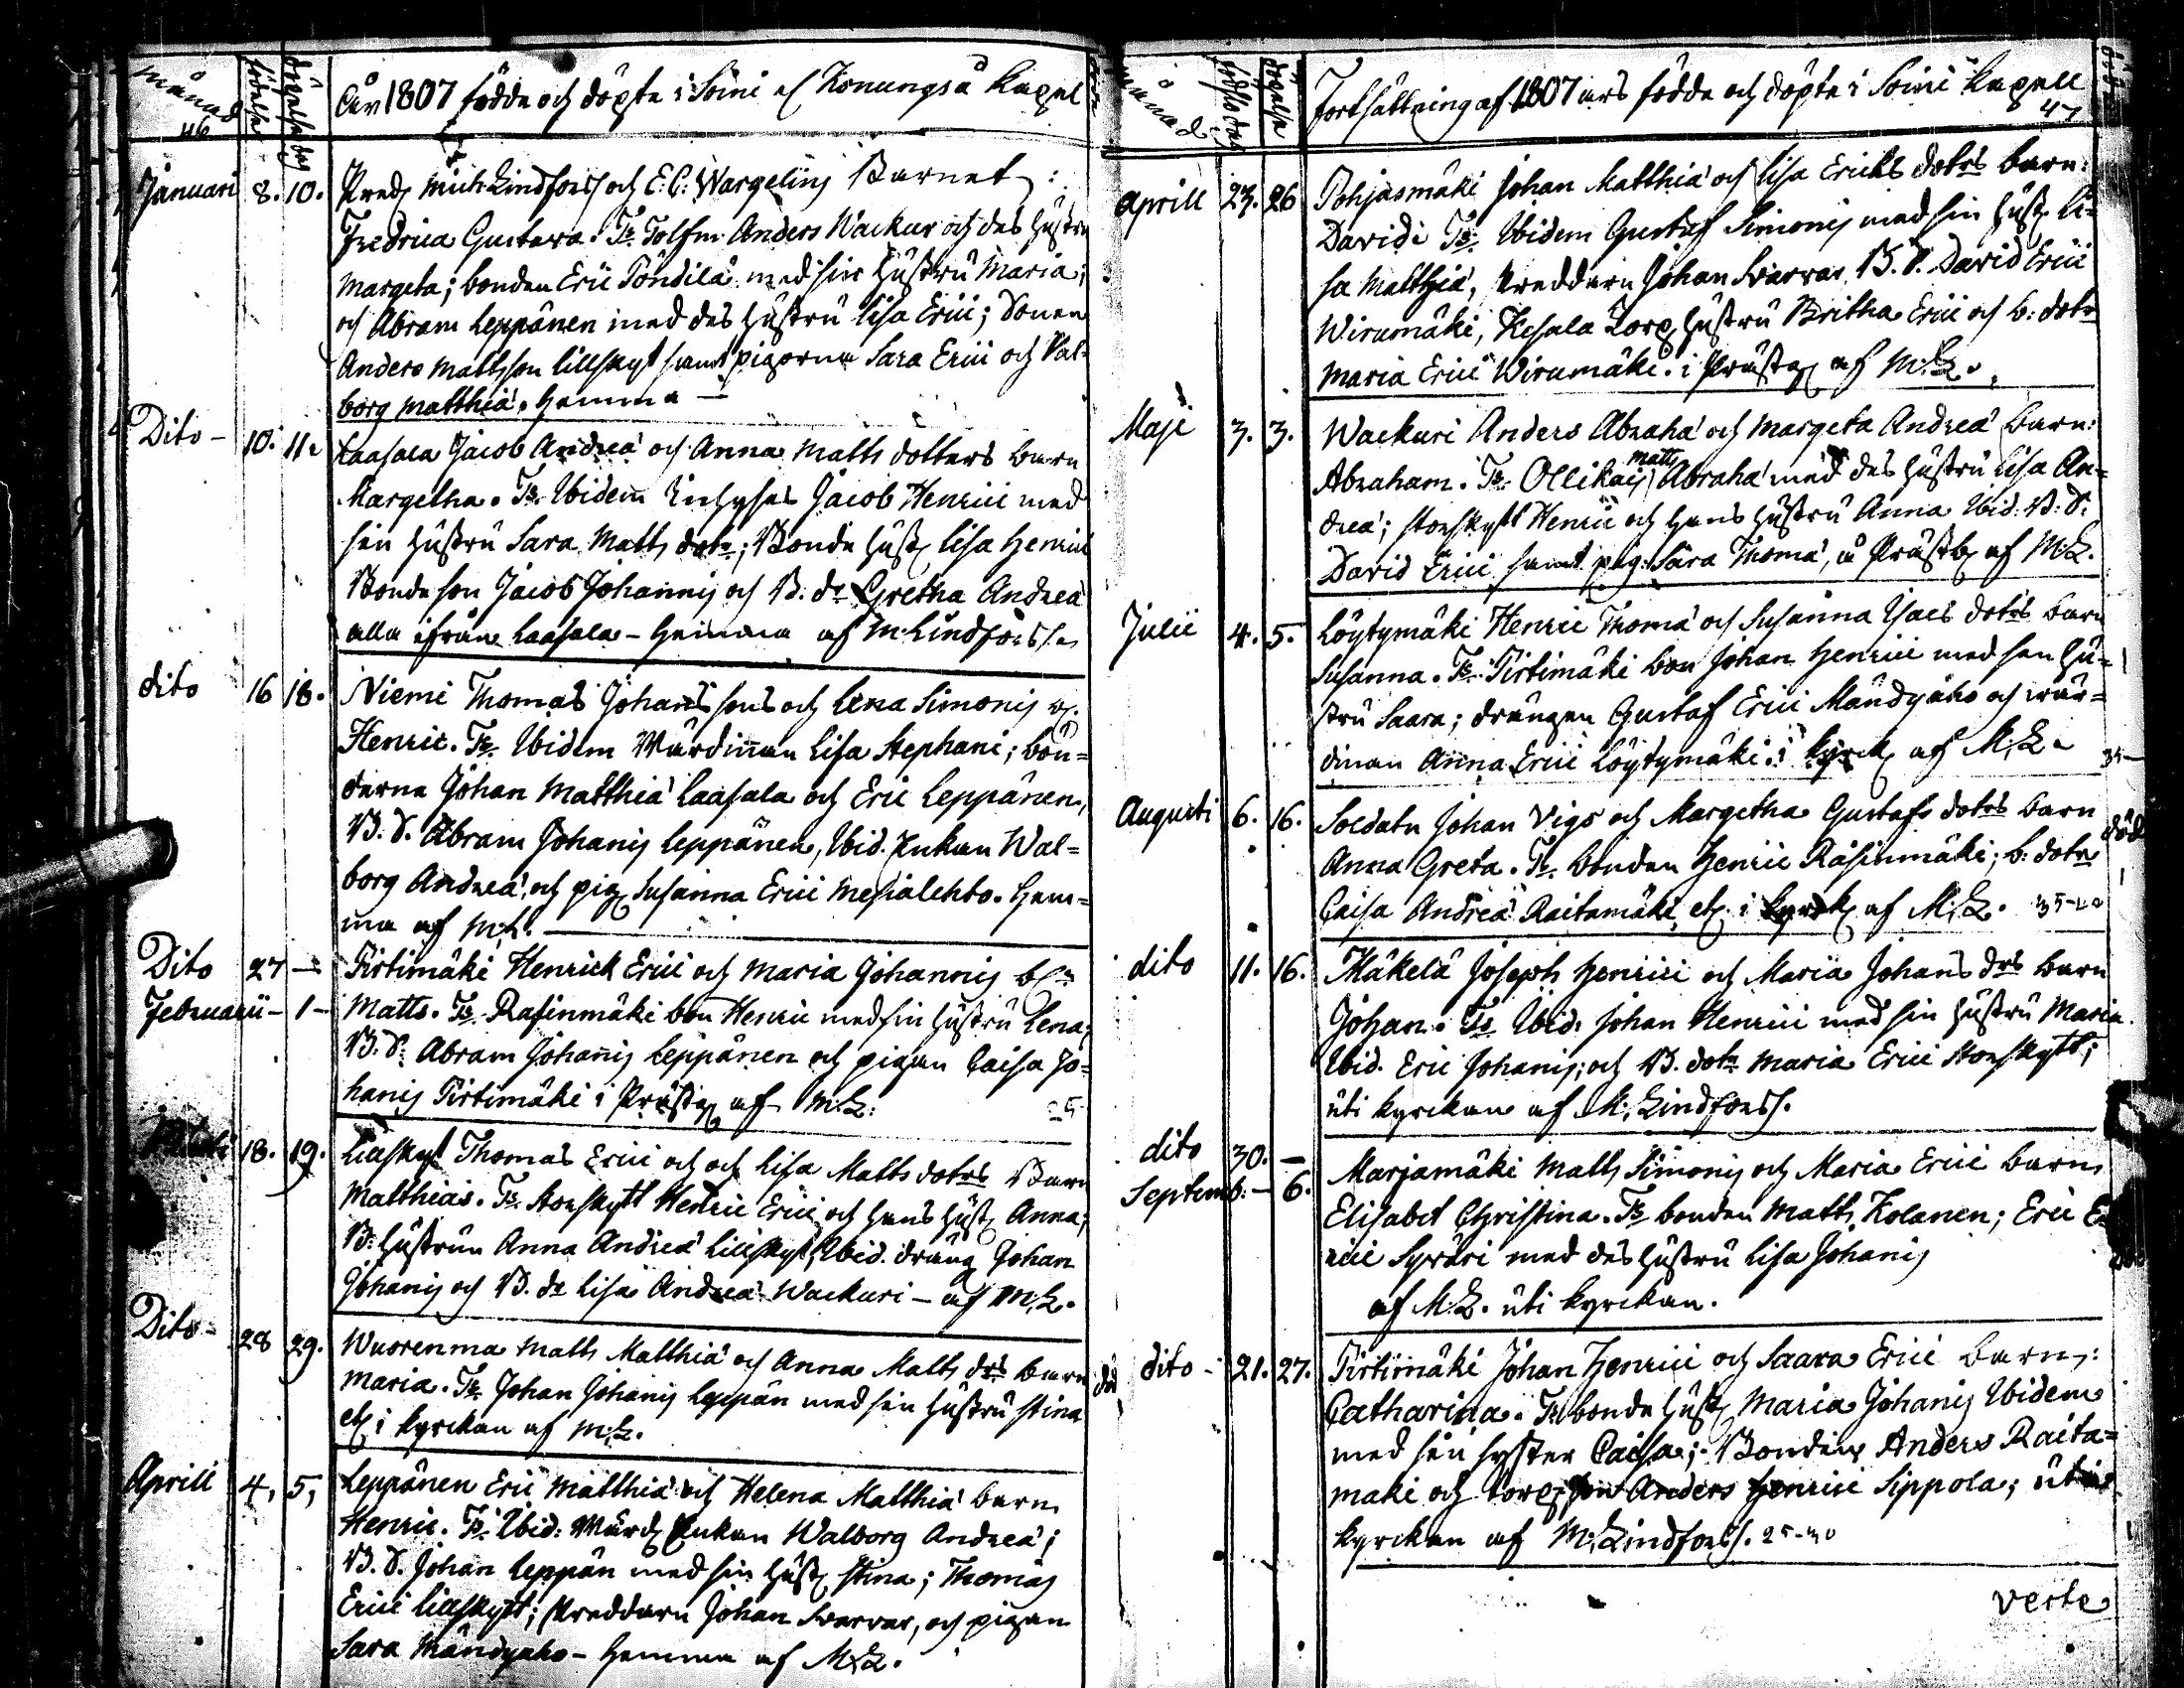 månad
födelse
döpelse dag
46
Åhr 1807 födde och döpte i Soini el Konungså Kapel
Januari 8. 10. Pred. Mich: Lindforss och E: C: Wargelins Barnet:
Fredrica Gustava. Ts. Tolfm. Anders Wackur och des hustru
Margeta; bonden Eric Pöndilä med sin hustru Maria;
och Abram Leppänen med des hustru Lisa Erici; Sonen
Anders Mattsson Lillskyt samt pigorna Sara Erici och Val-
borg Matthiæ. Hemma –
Dito – 10. 11. Laasala Jacob Andreæ och Anna Matts dotters barn
Margetha. Ts. Ibidem Inhyses Jacob Henrici med
sin hustru Sara Matts dotr; Bonde hust. Lisa Henrici
Bonde son Jacob Johannis och B. dr Gretha Andreæ
alla ifrån Laasala – Hemma af M: Lindforss.
dito 16 18. Niemi Thomas Johans sons och Lena Simonis
Henric. Ts. Ibidem Wärdinnan Lisa Stephani; bön-
derna Johan Matthiæ Laasala och Eric Leppänen,
B. S. Abram Johanis Leppänen, Ibid. Enkan Wal-
borg Andreæ, och pig. Susanna Erici Mesialehto. Hem-
ma af M: L.
Dito 27 – Pirtimäki Henrick Erici och Maria Johannis
Februarii – 1 – Matts. Ts. Rasinmäki bon Henric med sin hustru Lena;
B. S. Abram Johanis Leppänen och pigan Caisa Jo-
hanis Pirtimäki i Prästg. af M: L:
18. 19. Lillskyt Thomas Erici och och Lisa Matts dotrs Barn
Matthias. Ts. Storskytt Henric Erici och hans hust. Anna;
B: hustrun Anna Andreæ Lillskyt, Ibid. dräng Johan
Johanis och B. dr Lisa Andreæ Wackuri – af M: L.
Dito – 28 29. Wuorenma Matts Matthiæ och Anna Matts drs barn
Maria. Ts. Johan Johanis Leppän med sin hustru Stina
etc i kyrckan af M: L.
Aprill 4, 5, Leppänen Eric Matthiæ och Helena Matthiæ barn
Henric. Ts. Ibid: Wärd. Enkan Walborg Andreæ;
B. S. Johan Leppän med sin hust. Stina; Thomas
Erici Lillskytt; skreddarn Johan Svarvar, och pigan
Sara Mändyaho – Hemma af M: L.
månad
födslodag
döpelse
Fortsättning af 1807 års födde och döpte i Soini Kapell
47
Aprill 23. 26 Pohjasmäki Johan Matthiæ och Lisa Ericks dotrs barn:
David: Ts. Ibidem Gustaf Simonis med sin hust. Li-
sa Matthiæ, skreddarn Johan Svarvar. B. S. David Erici
Wirumäki, Kesala Torp. hustru Britha Erici och b: dotr
Maria Erici Wirumäki. i Prästg. af M: L.
Maji 3. 3. Wackuri Anders Abrahæ och Margeta Andreæ barn:
Abraham. Ts. Ollikais Matts Abrahæ med des hustru Lisa An-
dreæ; Storskytt Henric och hans hustru Anna Ibid: B: S:
David Erici samt pig: Sara Thomæ, å Prästb. af M: L.
Julii 4. 5. Löytymäki Henric Thomæ och Susanna Isacs dotrs barn
Susanna. Ts. Pirtimäki bon Johan Henrici med sin hu-
stru Saara; drängen Gustaf Erici Mändyaho och wär-
dinan Anna Erici Löytymäki. i kyrck. af M: L.
Augusti 6. 16. Soldatn Johan Vigs och Margetha Gustafs dotrs barn
död
Anna Greta. Ts. bonden Henric Räsinmäki; b: dotr
Caisa Andreæ Raitamäki etc. i kyrck. af M: L.
dito 11. 16. Mäkelä Joseph Henrici och Maria Johans drs barn
Johan. Ts. Ibid: Johan Henrici med sin hustru Maria.
Ibid. Eric Johanis; och B. dotr Maria Erici Storskytt;
uti kyrckan af M: Lindforss.
dito 30. – Marjamäki Matts Simonis och Maria Erici barn
Septemb: – 6. Elisabet Christina. Ts. bonden Matts Kolanen; Eric E-
rici Syräri med des hustru Lisa Johanis
af M: L. uti kyrckan.
dito – 21. 27. Pirtimäki Johan Henrici och Saara Erici barn:
Catharina. Ts. bonde hust. Maria Johanis Ibidem
med sin syster Caisa; Bonden Anders Raita-
mäki och torp. son Anders Henrici Sippola; uti
kyrckan af M: Lindforss.
verte